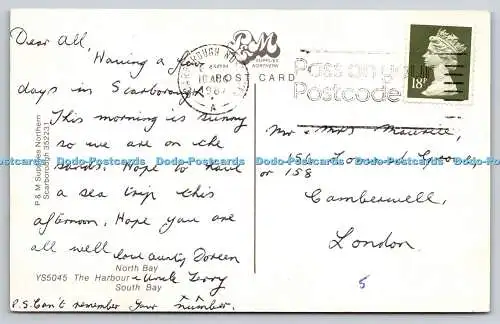 Dear All,
Having a few
days in Scarborough
This morning is sunny
so we are on the
sands. Hope to have
a sea trip this
afternoon. Hope you are
all well love aunty Doreen
& Uncle Terry
P.S. Can't remember your number.
North Bay
YS5045 The Harbour
South Bay
P & M Supplies Northern
Scarborough 352231
P&M
SUPPLIES
NORTHERN
POST CARD
SCARBOROUGH
1987
A
Pass on your
Postcode
18P
Mr & Mrs
156
or 158
Camberwell,
London.
5
Dodo-Postcards Dodo-Postcards Dodo-Postcards Dodo-Postcards Dodo-Postcards Dodo-Postcards